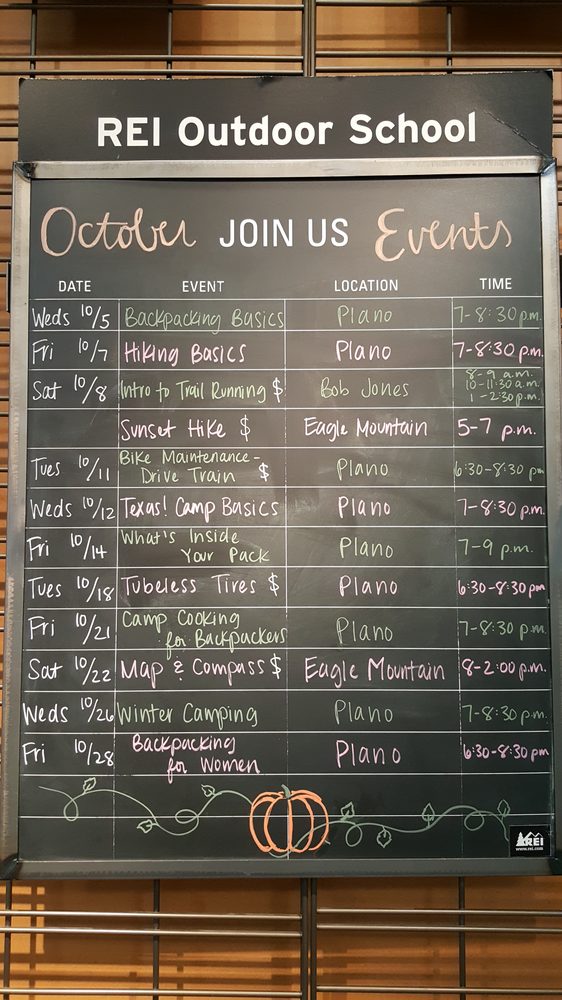 REI Outdoor School
October JOIN US Events
DATE EVENT LOCATION TIME
Weds 10/5 Backpacking Basics Plano 7-8:30 p.m.
Fri 10/7 Hiking Basics Plano 7-8:30 p.m.
Sat 10/8 Intro to Trail Running $ Bob Jones 8-9 a.m.
10-11:30 a.m.
1-2:30 p.m.
Sunset Hike $ Eagle Mountain 5-7 p.m.
Tues 10/11 Bike Maintenance-
Drive Train $ Plano 6:30-8:30 pm
Weds 10/12 Texas! Camp Basics Plano 7-8:30 p.m.
Fri 10/14 What's Inside
Your Pack Plano 7-9 p.m.
Tues 10/18 Tubeless Tires $ Plano 6:30-8:30 pm
Fri 10/21 Camp Cooking
for Backpackers Plano 7-8:30 p.m.
Sat 10/22 Map & Compass $ Eagle Mountain 8-2:00 p.m.
Weds 10/26 Winter Camping Plano 7-8:30 p.m.
Fri 10/28 Backpacking
for Women Plano 6:30-8:30 pm
REI
www.rei.com